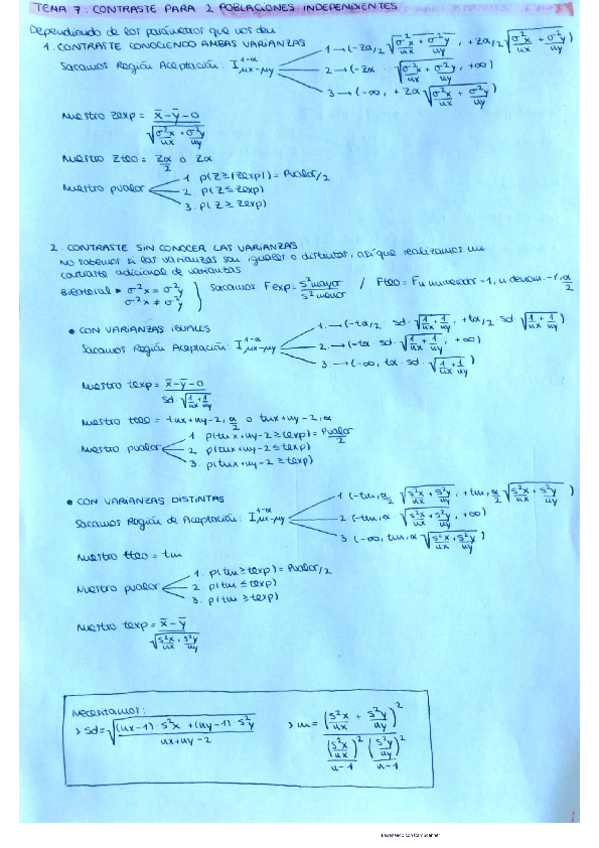 TEMA 7: CONTRASTE PARA 2 POBLACIONES INDEPENDIENTES
Dependiendo de los parámetros que nos den
1. CONTRASTE CONOCIENDO AMBAS VARIANZAS
Sacamos Región Aceptación: I^{1-α}_{μx-μy}
1 → (-Zα/2 √(σ²x/nx + σ²y/ny), +Zα/2 √(σ²x/nx + σ²y/ny))
2 → (-Zα · √(σ²x/nx + σ²y/ny), +∞)
3 → (-∞, +Zα √(σ²x/nx + σ²y/ny))
Nuestro Zexp = (x̄-ȳ-0)/√(σ²x/nx + σ²y/ny)
Nuestro Zteo = Zα/2 o Zα
Nuestro pvalor
1. p(Z≥|Zexp|) = Pvalor/2
2. p(Z≤Zexp)
3. p(Z≥Zexp)
2. CONTRASTE SIN CONOCER LAS VARIANZAS
no sabemos si las varianzas son iguales o distintas, así que realizamos un
contraste adicional de varianzas
Bilateral σ²x = σ²y
σ²x ≠ σ²y
Sacamos Fexp = s²mayor/s²menor / Fteo = Fn numerador-1, n denom.-1, α/2
• CON VARIANZAS IGUALES
Sacamos Región Aceptación: I^{1-α}_{μx-μy}
1. → (-tα/2 sd · √(1/nx + 1/ny), +tα/2 sd · √(1/nx + 1/ny))
2. → (-tα · sd · √(1/nx + 1/ny), +∞)
3 → (-∞, tα · sd · √(1/nx + 1/ny))
Nuestro texp = (x̄-ȳ-0)/(sd · √(1/nx + 1/ny))
Nuestro tteo = tnx+ny-2, α/2 o tnx+ny-2, α
Nuestro pvalor
1 p(tnx+ny-2≥texp) = Pvalor/2
2. p(tnx+ny-2≤texp)
3. p(tnx+ny-2≥texp)
• CON VARIANZAS DISTINTAS
Sacamos Región de Aceptación: I^{1-α}_{μx-μy}
1 (-tm,α/2 √(s²x/nx + s²y/ny), +tm,α/2 √(s²x/nx + s²y/ny))
2 (-tm,α √(s²x/nx + s²y/ny), +∞)
3 (-∞, tm,α √(s²x/nx + s²y/ny))
Nuestro tteo = tm
Nuestro pvalor
1. p(tm≥texp) = Pvalor/2
2. p(tm≤texp)
3. p(tm≥texp)
Nuestro texp = (x̄-ȳ)/√(s²x/nx + s²y/ny)
Necesitamos:
> sd = √(((nx-1)·s²x + (ny-1)·s²y)/(nx+ny-2))
> m = (s²x/nx + s²y/ny)² / ((s²x/nx)²/(n-1) (s²y/ny)²/(n-1))